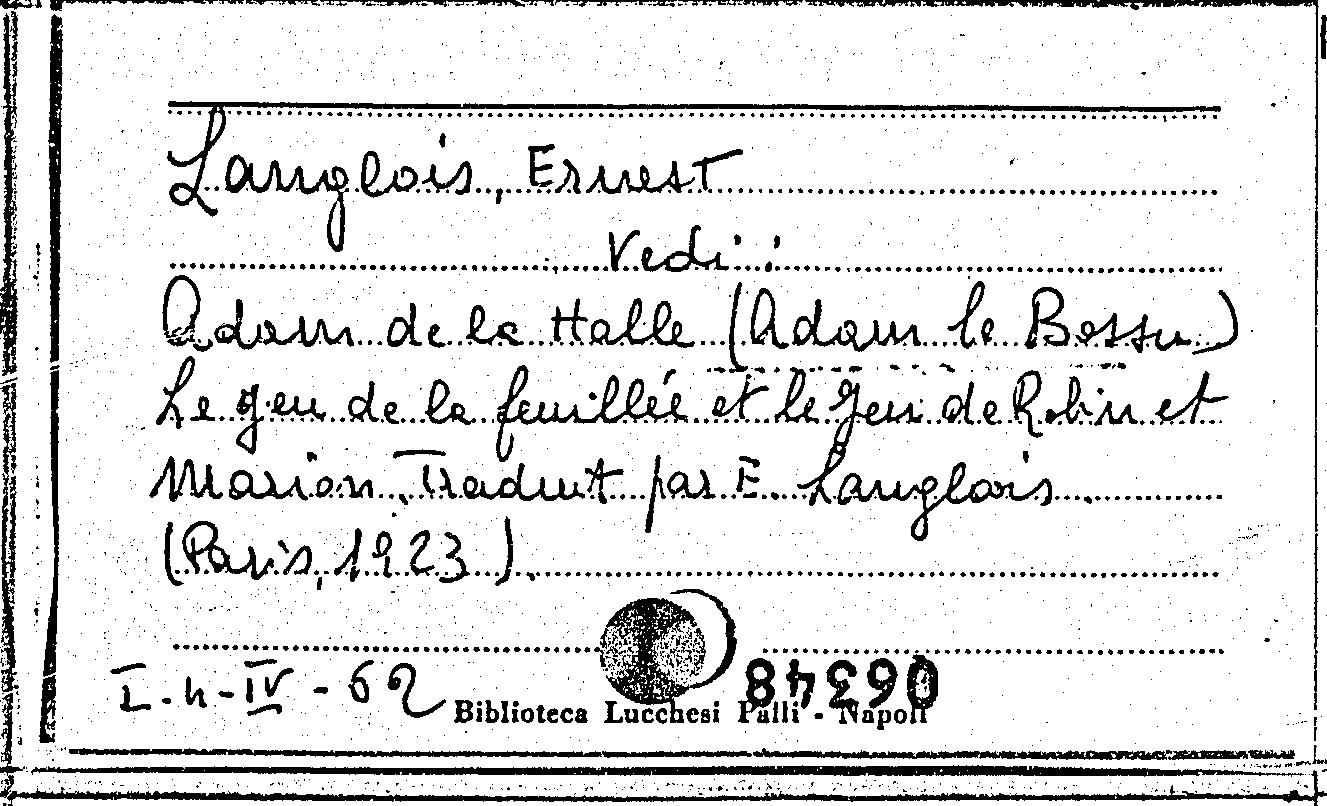 Langlois, Ernest
Vedi:
Adam de la Halle (Adam le Bossu)
Le jeu de la feuillée et le Jeu de Robin et
Marion. Traduit par E. Langlois.
(Paris, 1923).
I. 4-IV - 62
06348
Biblioteca Lucchesi Palli - Napoli